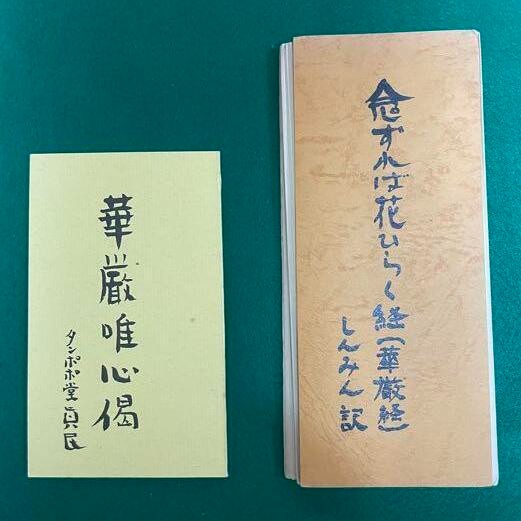 念ずれば花ひらく経(華厳経)
しんみん記
華厳唯心偈
タンポポ堂真民